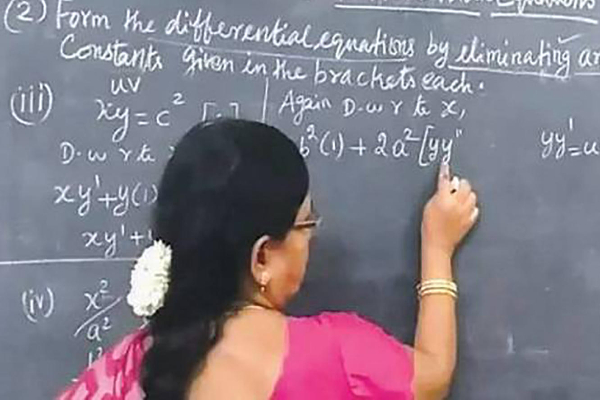 Equations
(2) Form the differential equations by eliminating
Constants given in the brackets each.
(iii)
uv
xy = c²
D.w.r.to
xy' + y(1)
xy' +
(iv) x²
a²
Again D.w.r.to x,
b²(1) + 2a² [yy"
yy' = u